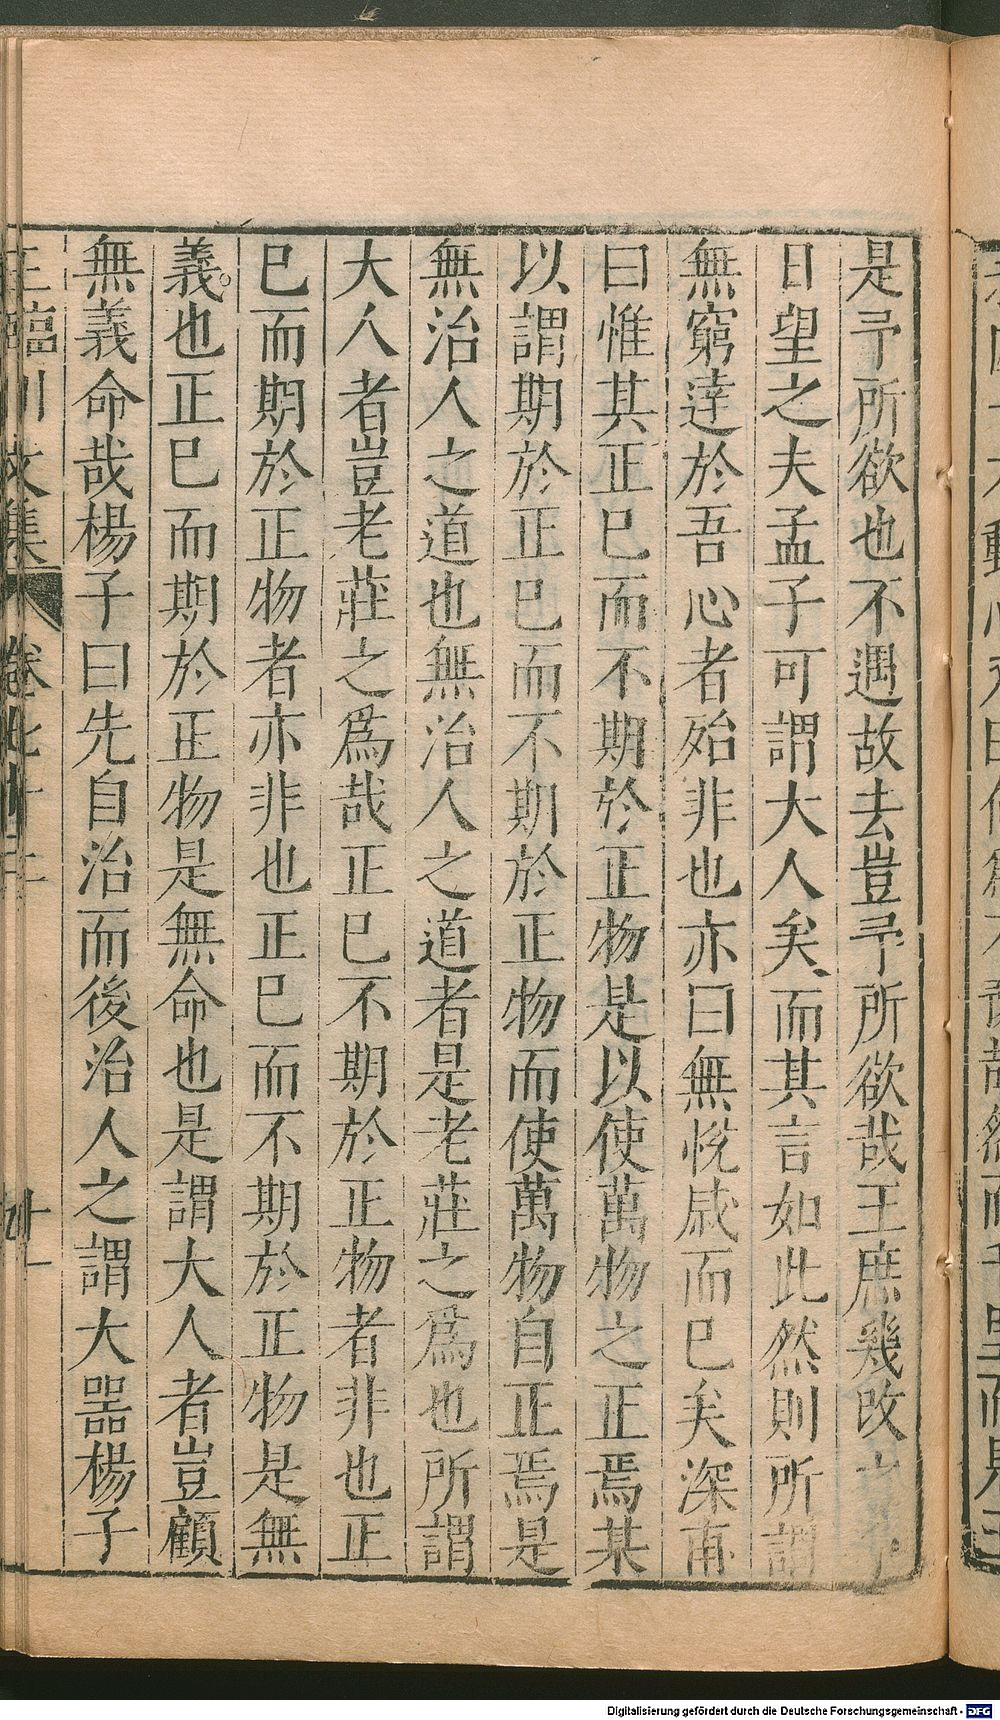 是予所欲也不遇故去豈予所欲哉王庶幾改之予
日望之夫孟子可謂大人矣而其言如此然則所謂
無窮達於吾心者殆非也亦曰無悅戚而已矣深甫
曰惟其正已而不期於正物是以使萬物之正焉某
以謂期於正已而不期於正物而使萬物自正焉是
無治人之道也無治人之道者是老莊之爲也所謂
大人者豈老莊之爲哉正已不期於正物者非也正
已而期於正物者亦非也正已而不期於正物是無
義也正已而期於正物是無命也是謂大人者豈顧
無義命哉楊子曰先自治而後治人之謂大噐楊子
王臨川文集 卷七十二
Digitalisierung gefördert durch die Deutsche Forschungsgemeinschaft - DFG